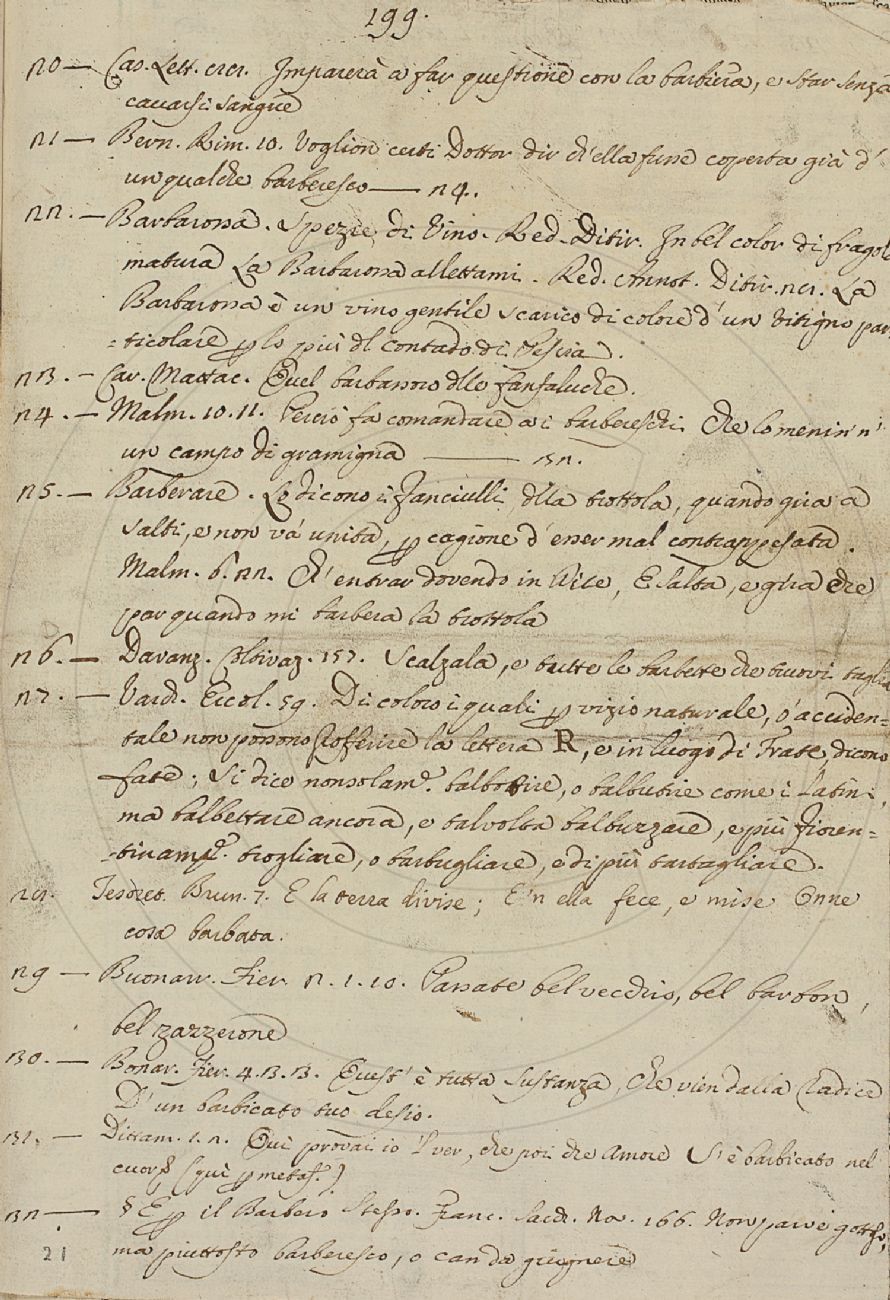 199.
20 — Cas. Lett. 28. Imparerà a far questione con la barbiera, e star senza
cavarsi sangue
21 — Bern. Rim. 10. Voglion certi Dottor dir ch'ella fusse coperta già d'
un qualche barberesco — 24.
22. — Barbarossa. Spezie di Vino. Red. Ditir. In bel color di fragola
matura La Barbarossa allettami. Red. Annot. Ditir. 28. La
Barbarossa è un vino gentile scarico di colore d'un vitigno par
=ticolare p lo più dl contado di Pescia.
23. — Car. Mattac. Quel barbassoro dlle fanfaluche.
24. — Malm. 10. 11. Perciò fa comandare a i barbereschi Che lo menin 'n
un campo di gramigna — 32.
25. — Barberare. Lo dicono i Fanciulli dlla trottola, quando gira a
salti, e non va' unita, p cagione d'esser mal contrappesata.
Malm. 6. 22. Ch'entrar dovendo in Dite, E salta, e gira che
par quando mi barbera la trottola
26. — Davanz. Coltivaz. 157. Scalzala, e tutte le barbette che truovi taglia
27. — Varch. Ercol. 59. Di coloro i quali p vizio naturale, o' acciden=
tale non possono profferire la lettera R, e in luogo di Frate, dicono
fate; si dice nonsolam.e balbotire, o balbutire come i Latini,
ma balbettare ancora, e talvolta balbuzzare, e più Fioren=
=tinam.e trogliare, o barbugliare, e di più tartagliare.
28. Tesoret. Brun. 7. E la terra divise; E 'n ella fece, e mise Onne
cosa barbata.
29 — Buonarr. Fier. 2. 1. 10. Passate bel vecchio, bel barbon,
bel zazzerone
30. — Bonar. Fier. 4. 3. 3. Quest' è tutta sustanza, che vien dalla Radice
D'un barbicato tuo desio.
31. — Dittam. 1. 2. Qui provai io 'l ver, che poi che Amore S' è barbicato nel
cuor (qui p metaf.)
32 — § E p il Barbero stesso. Franc. Sacch. Nov. 166. Non parve gottoso,
21 ma piuttosto barberesco, o can da giugnere